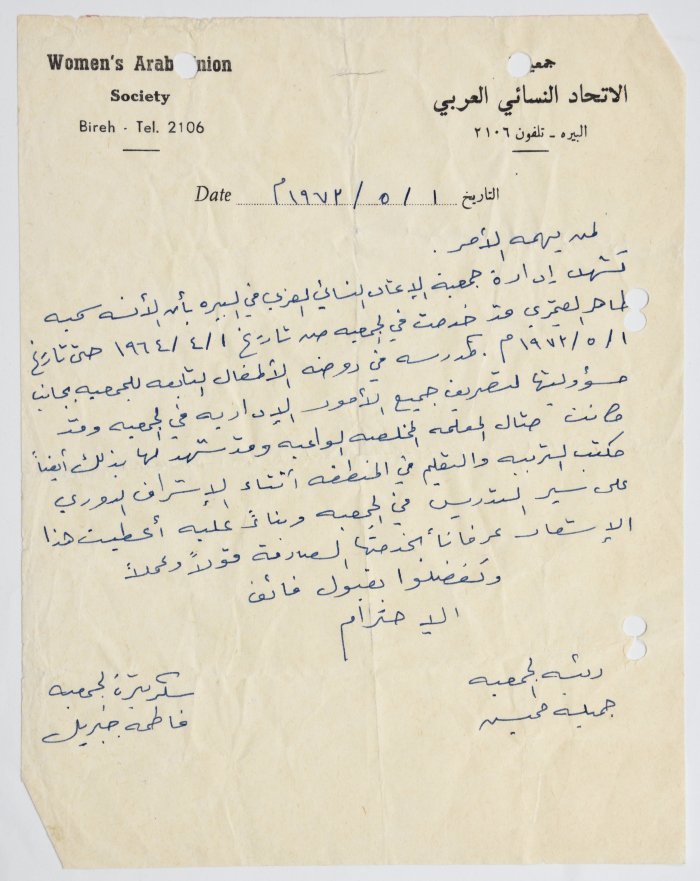 Women's Arab Union
Society
Bireh - Tel. 2106
جمعية
الاتحاد النسائي العربي
البيره - تلفون ٢١٠٦
Date ١ / ٥ / ١٩٧٢م التاريخ
لمن يهمه الأمر .
تشهد إدارة جمعية الإتحاد النسائي العربي في البيره بأن الأنسه سميه
طاهر العمري قد خدمت في الجمعيه من تاريخ ١/٤/١٩٦٤ حتى تاريخ
١/٥/١٩٧٢م . كمدرسه في روضه الأطفال التابعه للجمعيه بجانب
مسؤوليتها لتصريف جميع الأمور الإداريه في الجمعيه وقد
كانت مثال المعلمه المخلصه الواعيه وقد شهد لها بذلك أيضاً
مكتب التربيه والتعليم في المنطقه أثناء الإشراف الدوري
على سير التدريس في الجمعيه وبناءً عليه أعطيت هذا
الإستعار عرفاناً بخدمتها الصادقة قولاً وعملاً
وتفضلوا بقبول فائق
الإحترام
رئيسه الجمعيه
سكرتيرة الجمعيه
فاطمه جبريل